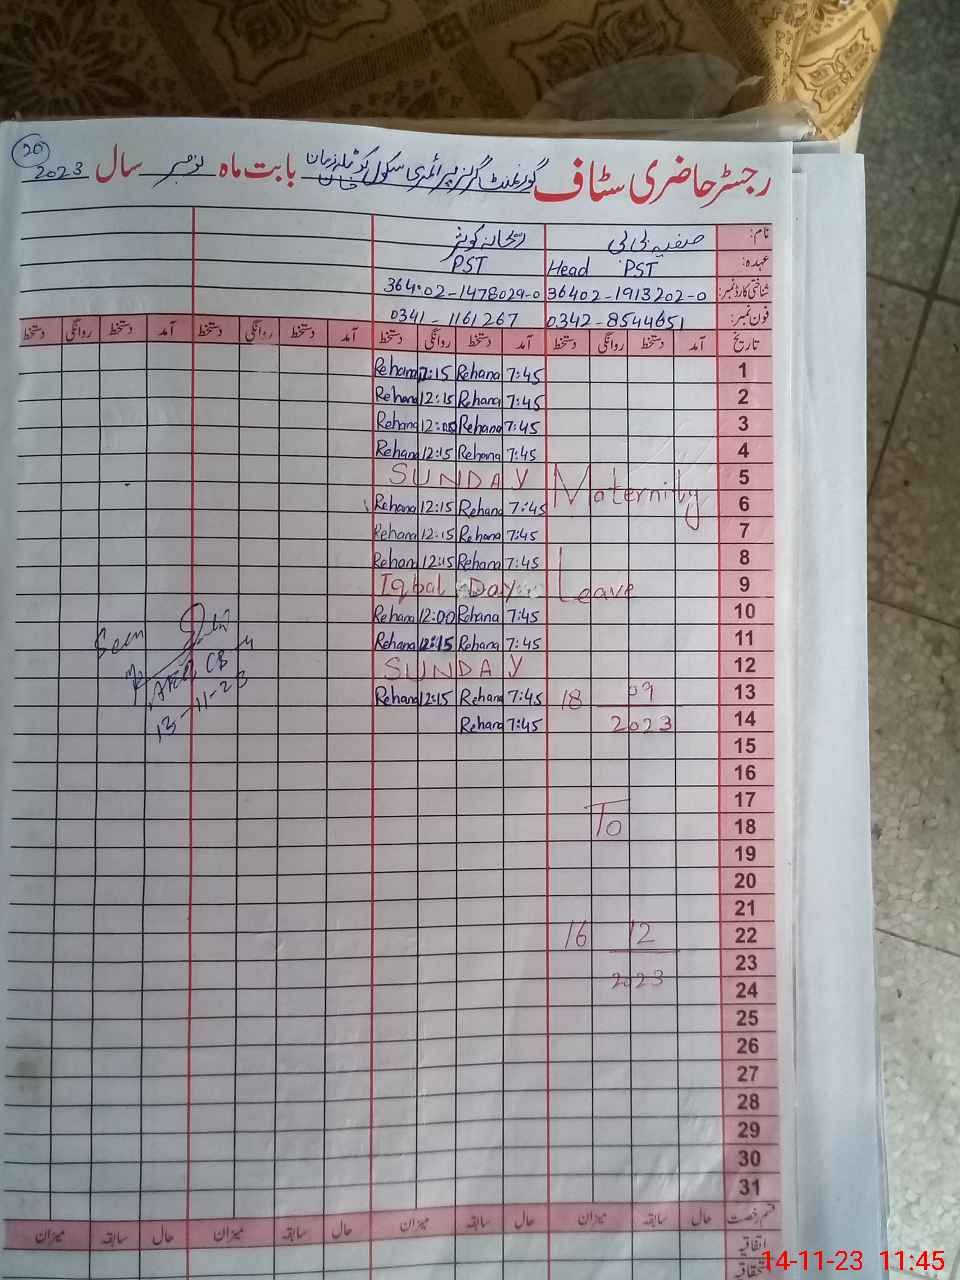 رجسٹر حاضری سٹاف گورنمنٹ گرلز پرائمری سکول کوٹلہ زمان خان بابت ماہ نومبر سال 2023
20
نام: صفیہ بی بی ریحانہ کوثر
عہدہ: Head PST PST
شناختی کارڈ نمبر: 36402-1913202-0 36402-1478029-0
فون نمبر: 0342-8544651 0341-1161267
تاریخ آمد دستخط روانگی دستخط آمد دستخط روانگی دستخط آمد دستخط روانگی دستخط آمد دستخط روانگی دستخط
1 7:45 Rehana 12:15 Rehana
2 7:45 Rehana 12:15 Rehana
3 7:45 Rehana 12:00 Rehana
4 7:45 Rehana 12:15 Rehana
5 SUNDAY
Maternity
6 7:45 Rehana 12:15 Rehana
7 7:45 Rehana 12:15 Rehana
8 7:45 Rehana 12:15 Rehana
9 Leave Iqbal Day
10 7:45 Rehana 12:00 Rehana
11 7:45 Rehana 12:15 Rehana
12 SUNDAY
13 18 09 7:45 Rehana 12:15 Rehana
14 2023 7:45 Rehana
15
16
17
18 To
19
20
21
22 16 12
23
24 2023
25
26
27
28
29
30
31
Seen
AEO CB
13-11-23
قسم رخصت حال سابقہ میزان حال سابقہ میزان حال سابقہ میزان حال سابقہ میزان
اتفاقیہ
14-11-23 11:45